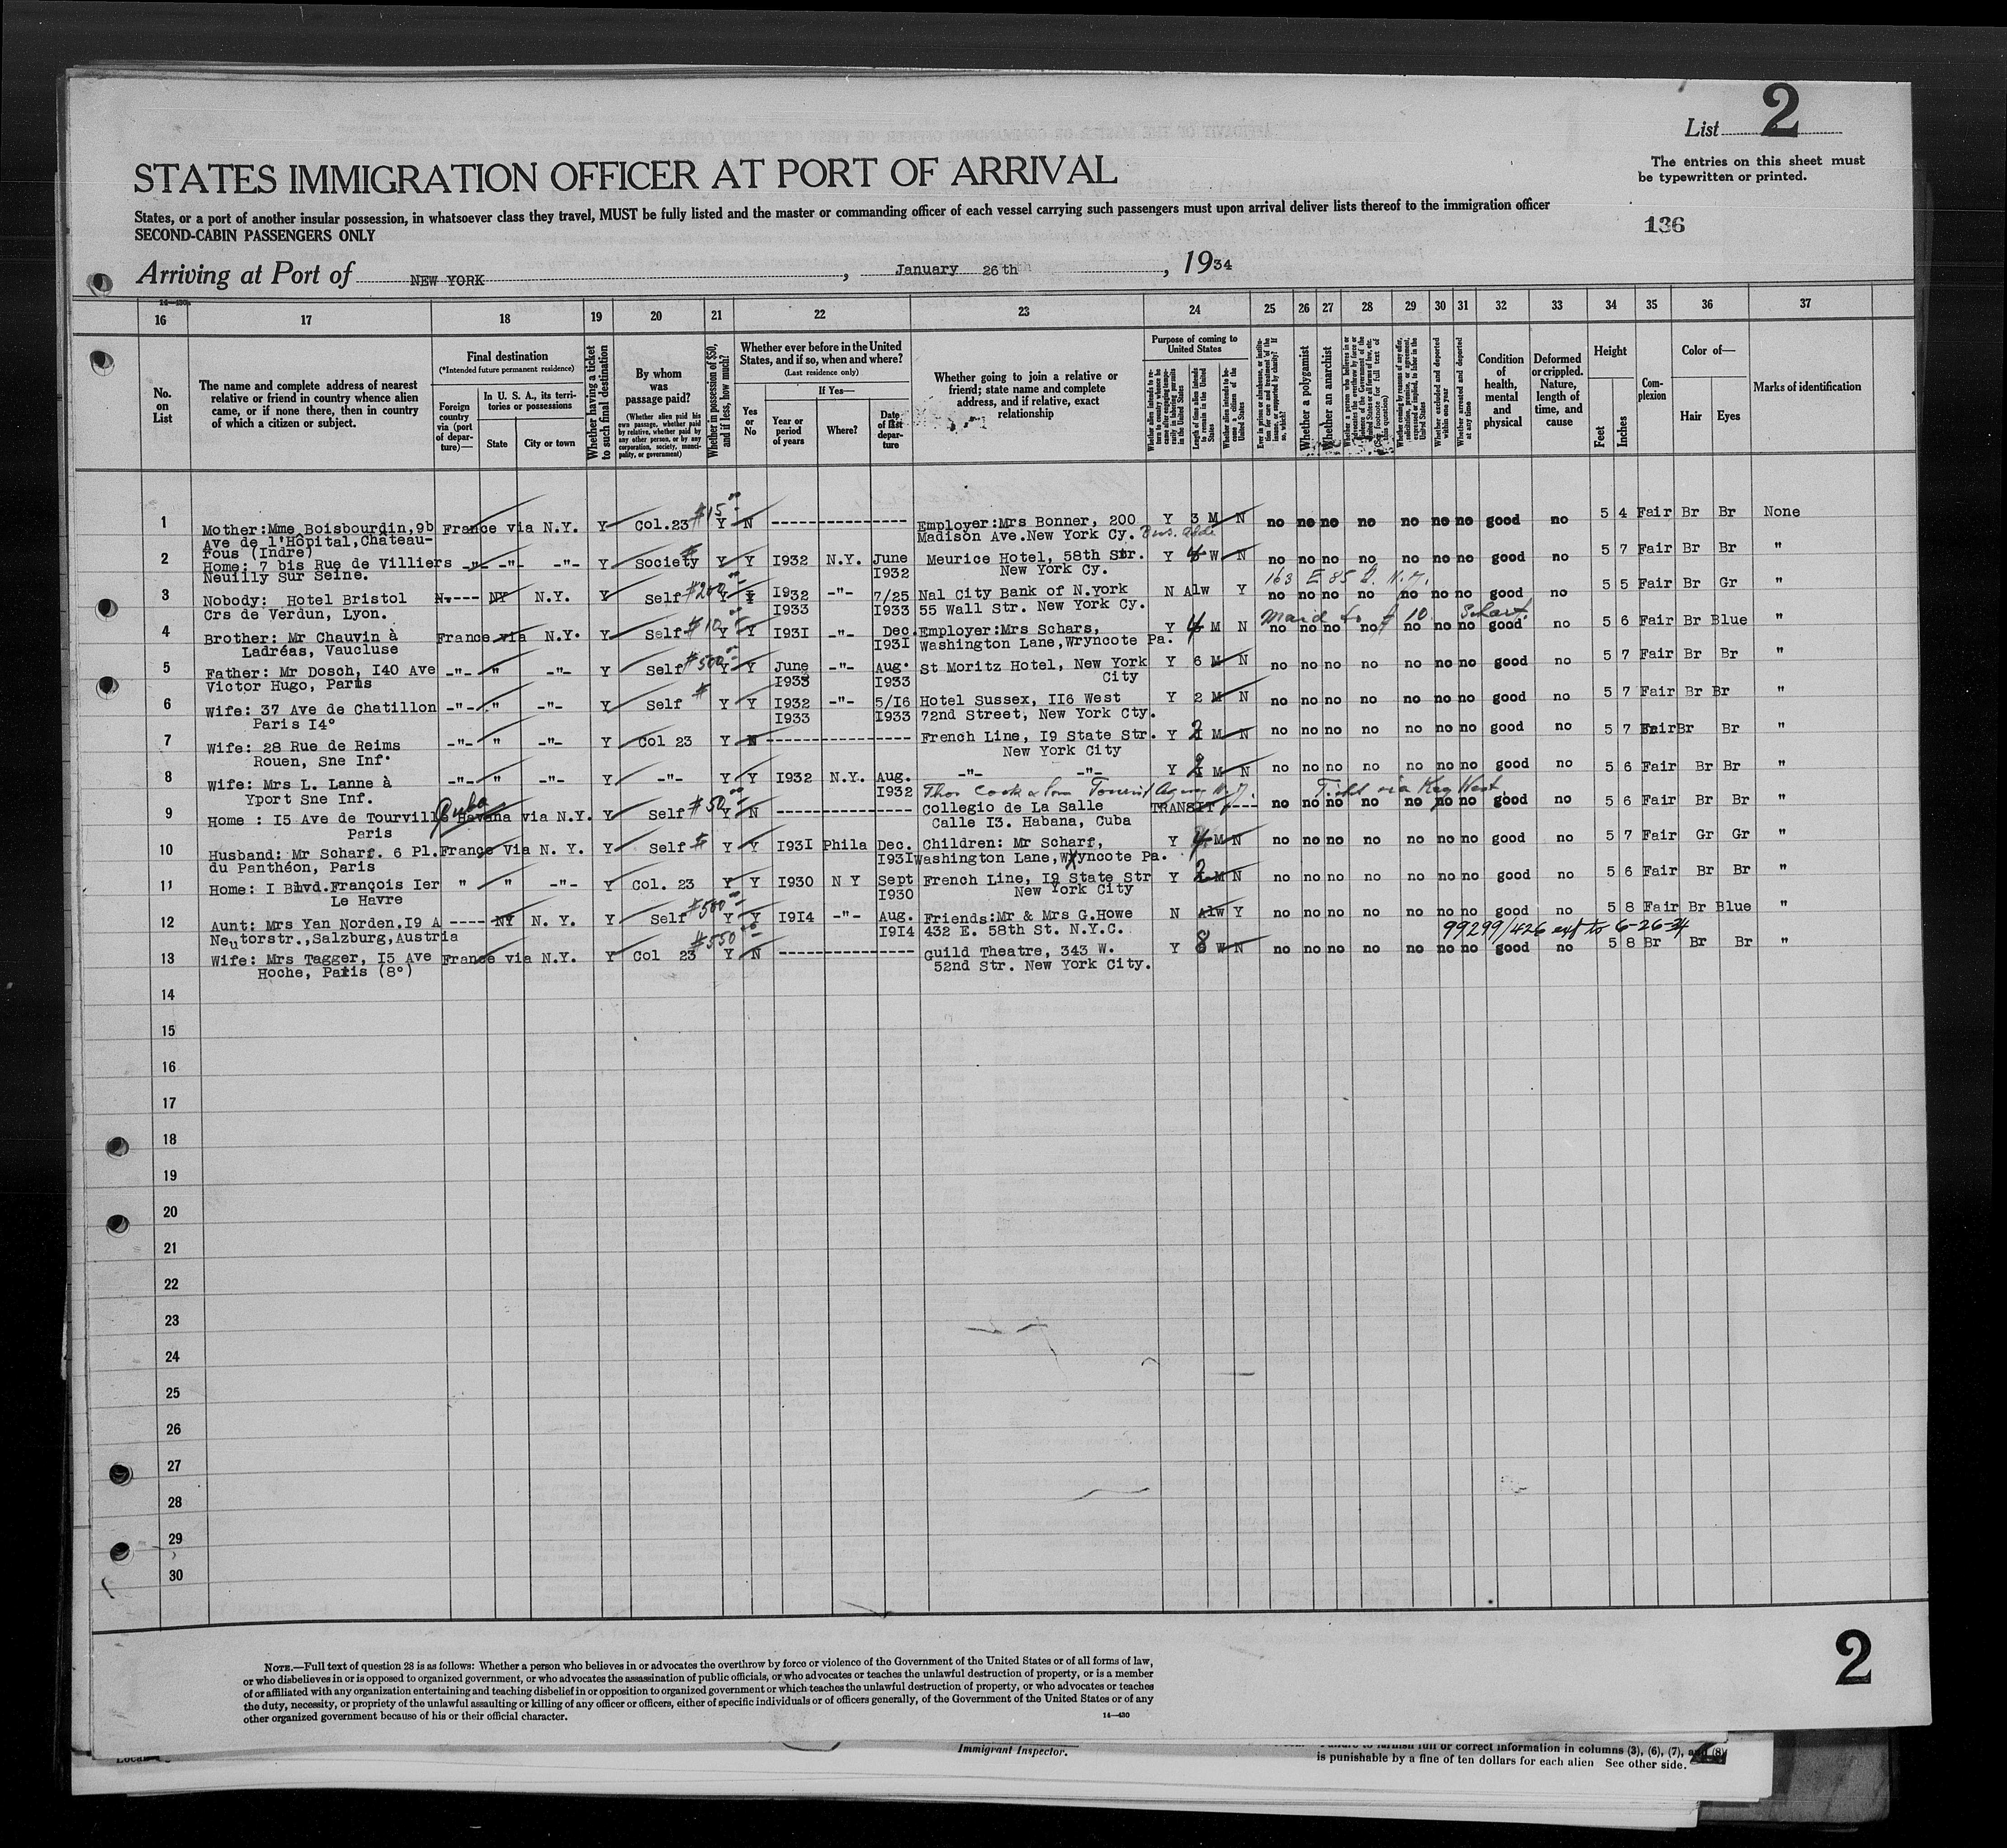 List 2
STATES IMMIGRATION OFFICER AT PORT OF ARRIVAL
The entries on this sheet must
be typewritten or printed.
States, or a port of another insular possession, in whatsoever class they travel, MUST be fully listed and the master or commanding officer of each vessel carrying such passengers must upon arrival deliver lists thereof to the immigration officer
SECOND-CABIN PASSENGERS ONLY
136
Arriving at Port of NEW YORK, January 26th, 1934
14—430
16 17 18 19 20 21 22 23 24 25 26 27 28 29 30 31 32 33 34 35 36 37
No. on List
The name and complete address of nearest relative or friend in country whence alien came, or if none there, then in country of which a citizen or subject.
Final destination
(*Intended future permanent residence)
Foreign country via (port of departure)—
In U. S. A., its territories or possessions
State
City or town
Whether having a ticket to such final destination
By whom was passage paid?
(Whether alien paid his own passage, whether paid by relative, whether paid by any other person, or by any corporation, society, municipality, or government)
Whether in possession of $50, and if less, how much?
Whether ever before in the United States, and if so, when and where?
(Last residence only)
Yes or No
If Yes—
Year or period of years
Where?
Date of last departure
Whether going to join a relative or friend; state name and complete address, and if relative, exact relationship
Purpose of coming to United States
Whether alien intends to return to country whence he came after engaging temporarily in laboring pursuits in the United States
Length of time alien intends to remain in the United States
Whether alien intends to become a citizen of the United States
Ever in prison or almshouse, or institution for care and treatment of the insane, or supported by charity? If so, which?
Whether a polygamist
Whether an anarchist
Whether excluded and deported within one year
Whether arrested and deported at any time
Condition of health, mental and physical
Deformed or crippled. Nature, length of time, and cause
Height
Feet
Inches
Complexion
Color of—
Hair
Eyes
Marks of identification
1 Mother:Mme Boisbourdin,9b France via N.Y. Y Col.23 $15.00 Y N ---------------- Employer:Mrs Bonner, 200 Y 3 M N no no no no no no no good no 5 4 Fair Br Br None
Ave de l'Hôpital,Château- Madison Ave.New York Cy. Bus. adde
rous (Indre)
2 Home: 7 bis Rue de Villiers -"- -"- -"- Y Society $ Y Y I932 N.Y. June Meurice Hotel, 58th Str. Y W N no no no no no no no good no 5 7 Fair Br Br "
Neuilly Sur Seine. I932 New York Cy.
163 E 85 St. N.Y.
3 Nobody: Hotel Bristol N.---- NY N.Y. Y Self $200.00 Y Y I932 -"- 7/25 Nal City Bank of N.york N Alw Y no no no no no no no good no 5 5 Fair Br Gr "
Crs de Verdun, Lyon. I933 I933 55 Wall Str. New York Cy.
Maid to # 10 Scharf.
4 Brother: Mr Chauvin à France via N.Y. Y Self $10.00 Y Y I93I -"- Dec. Employer:Mrs Schars, Y 4 M N no no no no no no no good no 5 6 Fair Br Blue "
Ladréas, Vaucluse I93I Washington Lane,Wryncote Pa.
5 Father: Mr Dosch, I40 Ave -"- " -"- Y Self $500.00 Y Y June -"- Aug. St Moritz Hotel, New York Y 6 M N no no no no no no no good no 5 7 Fair Br Br "
Victor Hugo, Paris I933 I933 City
6 Wife: 37 Ave de Chatillon -"- " -"- Y Self $ Y Y I932 -"- 5/I6 Hotel Sussex, II6 West Y 2 M N no no no no no no no good no 5 7 Fair Br Br "
Paris I4° I933 I933 72nd Street, New York Cty.
7 Wife: 28 Rue de Reims -"- " -"- Y Col 23 Y N ----------------- French Line, I9 State Str. Y 2 M N no no no no no no no good no 5 7 Fair Br Br "
Rouen, Sne Inf. New York City
8 Wife: Mrs L. Lanne à -"- " -"- Y -"- Y Y I932 N.Y. Aug. -"- -"- Y 2 M N no no no no no no no good no 5 6 Fair Br Br "
Yport Sne Inf. I932
Thos Cook & Son Tourist Agency N.Y. Tickt via Key West.
9 Home : I5 Ave de Tourville Cuba Havana via N.Y. Y Self $50.00 Y N ---------------- Collegio de La Salle TRANSIT --- no no no no no no no good no 5 6 Fair Br Br "
Paris Calle I3. Habana, Cuba
10 Husband: Mr Scharf. 6 Pl. France Via N. Y. Y Self $ Y Y I93I Phila Dec. Children: Mr Scharf, Y 4 M N no no no no no no no good no 5 7 Fair Gr Gr "
du Panthéon, Paris I93I Washington Lane,Wyncote Pa.
11 Home: I Blvd.François Ier " " -"- Y Col. 23 Y Y I930 N Y Sept French Line, I9 State Str Y 2 M N no no no no no no no good no 5 6 Fair Br Br "
Le Havre I930 New York City
12 Aunt: Mrs Yan Norden.I9 A ---- NY N. Y. Y Self $500.00 Y Y I9I4 -"- Aug. Friends:Mr & Mrs G.Howe N Alw Y no no no no no no no good no 5 8 Fair Br Blue "
Neutorstr.,Salzburg,Austria I9I4 432 E. 58th St. N.Y.C.
99299/426 ext to 6-26-34
13 Wife: Mrs Tagger, I5 Ave France via N.Y. Y Col 23 $550.00 Y N ---------------- Guild Theatre, 343 W. Y 8 W N no no no no no no no good no 5 8 Br Br Br "
Hoche, Paris (8°) 52nd Str. New York City.
14
15
16
17
18
19
20
21
22
23
24
25
26
27
28
29
30
NOTE.—Full text of question 28 is as follows: Whether a person who believes in or advocates the overthrow by force or violence of the Government of the United States or of all forms of law,
or who disbelieves in or is opposed to organized government, or who advocates the assassination of public officials, or who advocates or teaches the unlawful destruction of property, or is a member
of or affiliated with any organization entertaining and teaching disbelief in or opposition to organized government or which teaches the unlawful destruction of property, or who advocates or teaches
the duty, necessity, or propriety of the unlawful assaulting or killing of any officer or officers, either of specific individuals or of officers generally, of the Government of the United States or of any
other organized government because of his or their official character.
14—430
2
Immigrant Inspector.
full or correct information in columns (3), (6), (7), and (8)
is punishable by a fine of ten dollars for each alien See other side.